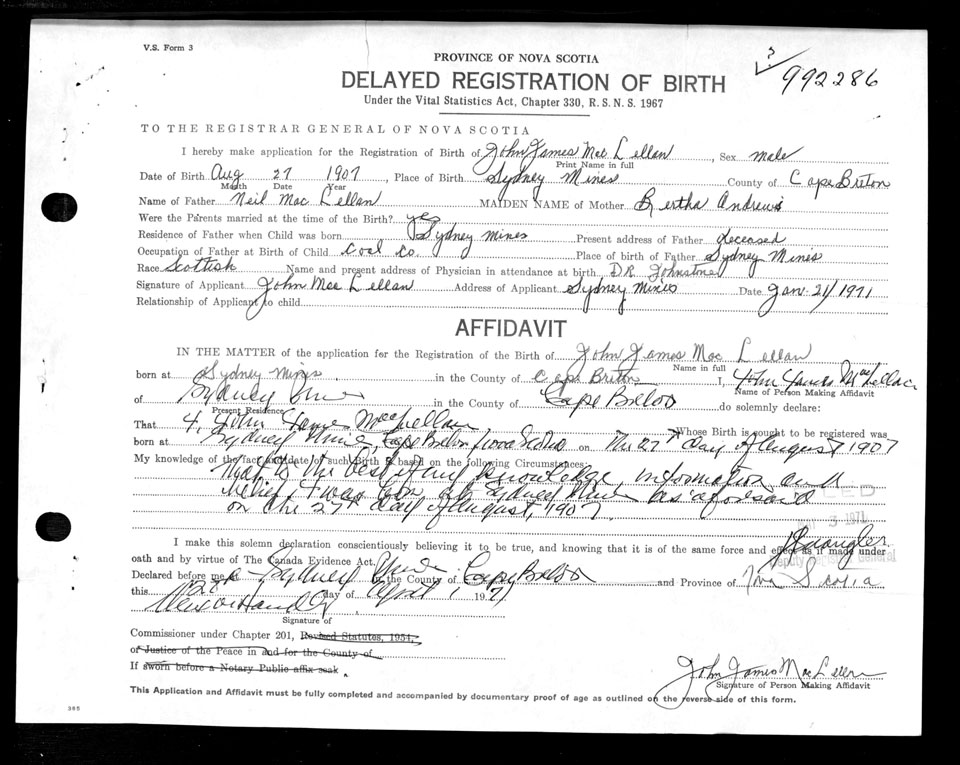 V.S. Form 3
PROVINCE OF NOVA SCOTIA
? 992286
DELAYED REGISTRATION OF BIRTH
Under the Vital Statistics Act, Chapter 330, R.S.N.S. 1967
TO THE REGISTRAR GENERAL OF NOVA SCOTIA
I hereby make application for the Registration of Birth of John James Mac Lellan, Sex male
Print Name in full
Date of Birth Aug 27 1907, Place of Birth Sydney Mines County of Cape Breton
Month Date Year
Name of Father Neil Mac Lellan MAIDEN NAME of Mother Bertha Andrews
Were the Parents married at the time of the Birth? yes
Residence of Father when Child was born Sydney Mines Present address of Father deceased
Occupation of Father at Birth of Child Coal Co. Place of birth of Father Sydney Mines
Race Scottish Name and present address of Physician in attendance at birth DR Johnstone
Signature of Applicant John Mac Lellan Address of Applicant Sydney Mines Date Jan. 21/1971
Relationship of Applicant to child
AFFIDAVIT
IN THE MATTER of the application for the Registration of the Birth of John James Mac Lellan
Name in full
born at Sydney Mines in the County of Cape Breton I, John James MacLellan
Name of Person Making Affidavit
of Sydney Mines in the County of Cape Breton do solemnly declare:
Present Residence
That I, John James MacLellan Whose Birth is sought to be registered was
born at Sydney Mines, Cape Breton, Nova Scotia on the 27th day of August 1907
My knowledge of the fact and date of such Birth is based on the following Circumstances:
that to the best of my knowledge, information and
belief I was born at Sydney Mines as aforesaid
on the 27th day of August, 1907.
3 1971
I make this solemn declaration conscientiously believing it to be true, and knowing that it is of the same force and effect as if made under
Deputy Registrar General
oath and by virtue of The Canada Evidence Act.
Declared before me at Sydney Mines in the County of Cape Breton and Province of Nova Scotia
this day of April, 1971
Signature of
Commissioner under Chapter 201, Revised Statutes, 1954,
or Justice of the Peace in and for the County of
If sworn before a Notary Public affix seal
John James MacLellan
Signature of Person Making Affidavit
This Application and Affidavit must be fully completed and accompanied by documentary proof of age as outlined on the reverse side of this form.
385